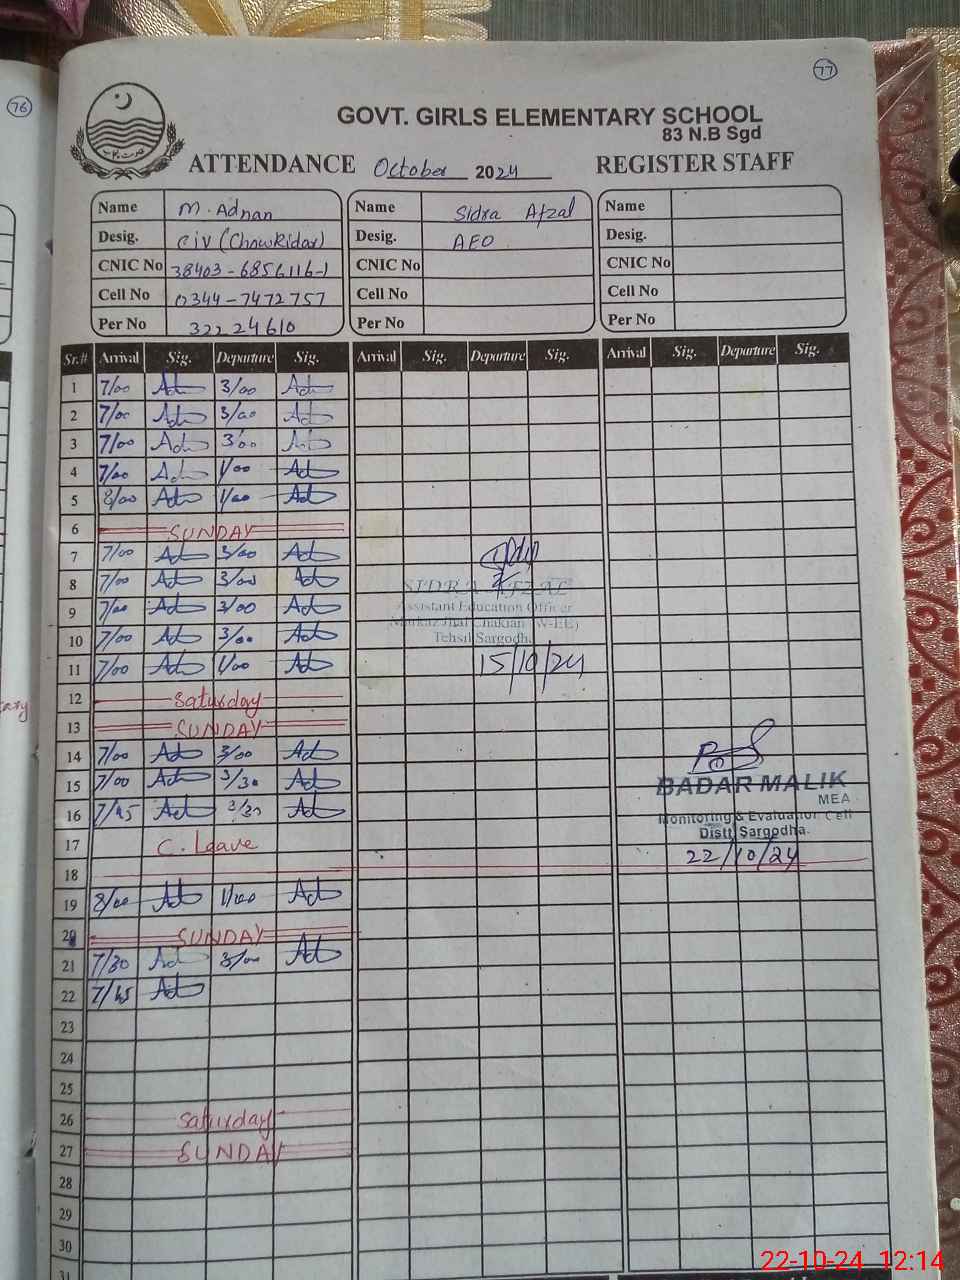 77
76
GOVT. GIRLS ELEMENTARY SCHOOL
83 N.B Sgd
ATTENDANCE October 2024 REGISTER STAFF
Name M. Adnan Name Sidra Afzal Name
Desig. C iv (Chowkidar) Desig. AEO Desig.
CNIC No 38403-6856116-1 CNIC No CNIC No
Cell No 0344-7472757 Cell No Cell No
Per No 32224610 Per No Per No
Sr.# Arrival Sig. Departure Sig. Arrival Sig. Departure Sig. Arrival Sig. Departure Sig.
1 7/00 Ad 3/00 Ad
2 7/00 Ad 3/00 Ad
3 7/00 Ad 3/00 Ad
4 7/00 Ad 1/00 Ad
5 8/00 Ad 1/00 Ad
6 SUNDAY
7 7/00 Ad 3/00 Ad
8 7/00 Ad 3/00 Ad
SIDRA AFZAL
9 7/00 Ad 3/00 Ad
Assistant Education Officer
Markaz Jhal Chakian (W-EE)
10 7/00 Ad 3/00 Ad
Tehsil Sargodh
11 7/00 Ad 1/00 Ad 15/10/24
12 Saturday
13 SUNDAY
14 7/00 Ad 3/00 Ad
15 7/00 Ad 3/30 Ad
BADAR MALIK
MEA
16 7/45 Ad 3/30 Ad
Monitoring & Evaluation Cell
Distt Sargodha.
17 C. Leave 22/10/24
18
19 8/00 Ad 1/00 Ad
20 SUNDAY
21 7/30 Ad 3/00 Ad
22 7/45 Ad
23
24
25
26 Saturday
27 SUNDAY
28
29
30
31
22-10-24 12:14